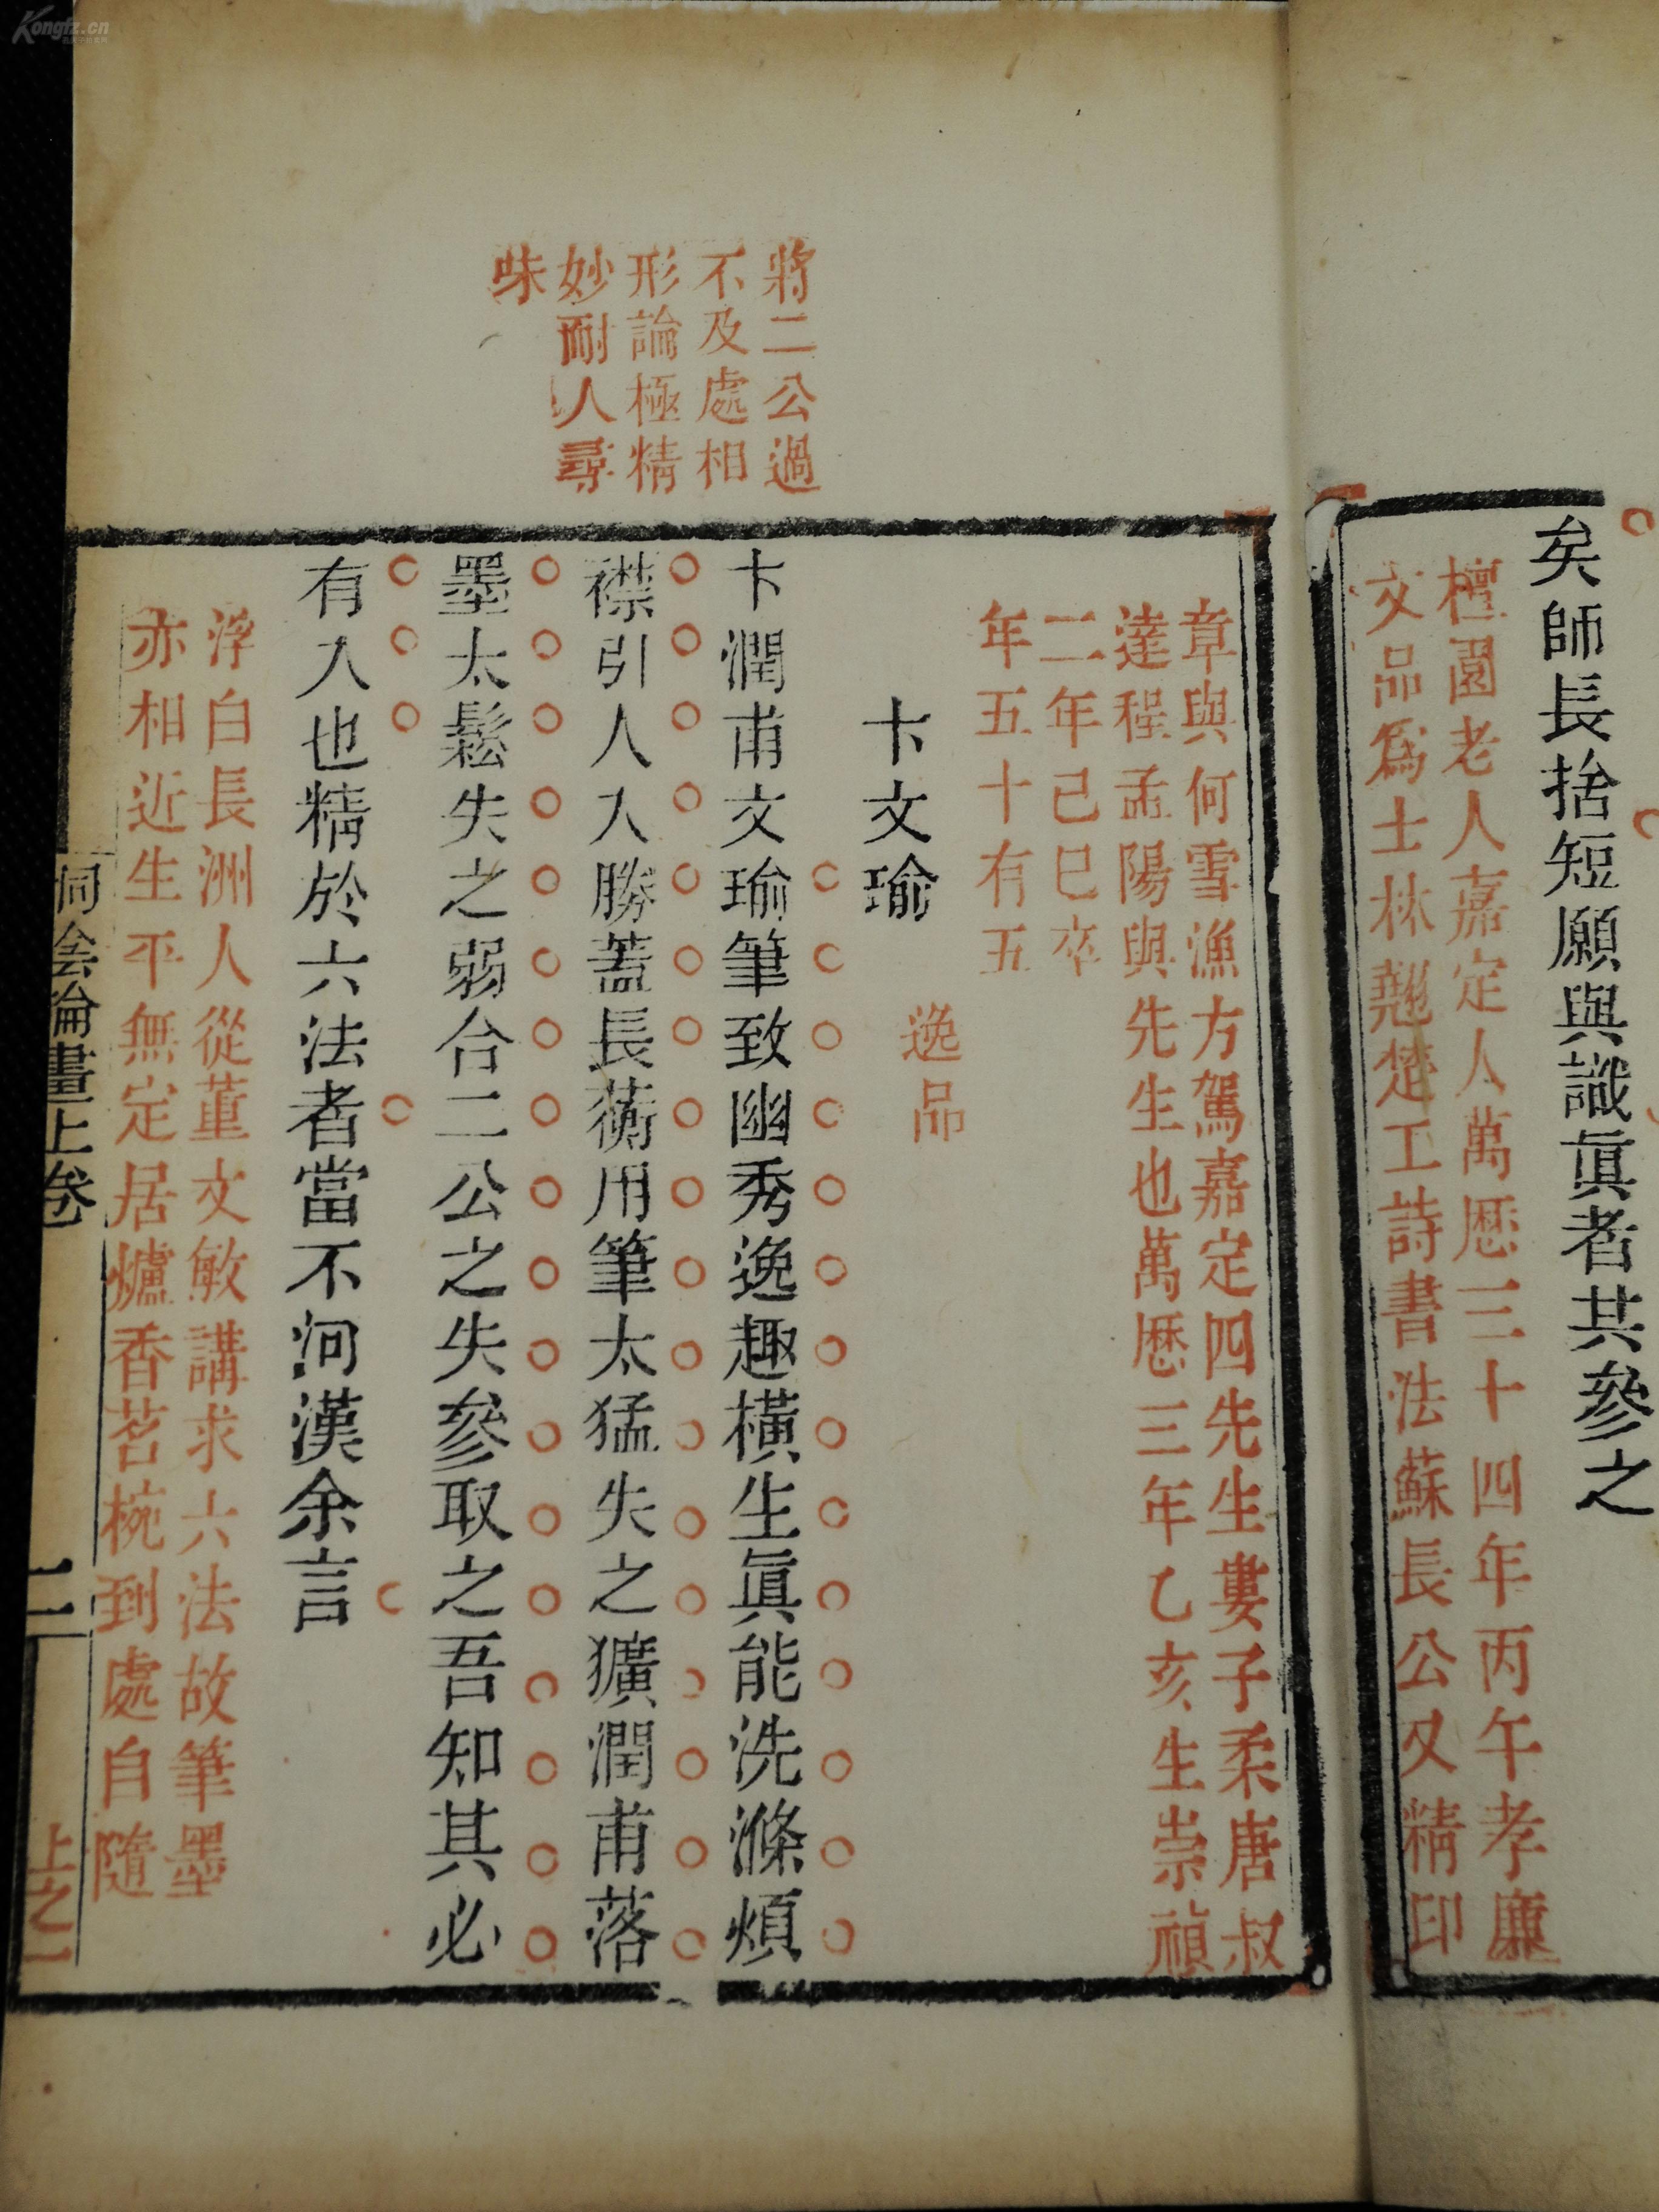 矣師長捨短願與識眞者共參之
檀園老人嘉定人萬厯三十四年丙午孝廉
文品爲士林翹楚工詩書法蘇長公又精印
章與何雪漁方駕嘉定四先生婁子柔唐叔
達程孟陽與先生也萬厯三年乙亥生崇禎
二年己巳卒
年五十有五
卞文瑜
逸品
將二公過
不及處相
形論極精
妙耐人尋
味
卞潤甫文瑜筆致幽秀逸趣橫生眞能洗滌煩
襟引人入勝蓋長蘅用筆太猛失之獷潤甫落
墨太鬆失之弱合二公之失參取之吾知其必
有入也精於六法者當不河漢余言
浮白長洲人從董文敏講求六法故筆墨
亦相近生平無定居爐香茗椀到處自隨
桐陰論畫上卷
二
上之一
Kongfz.cn